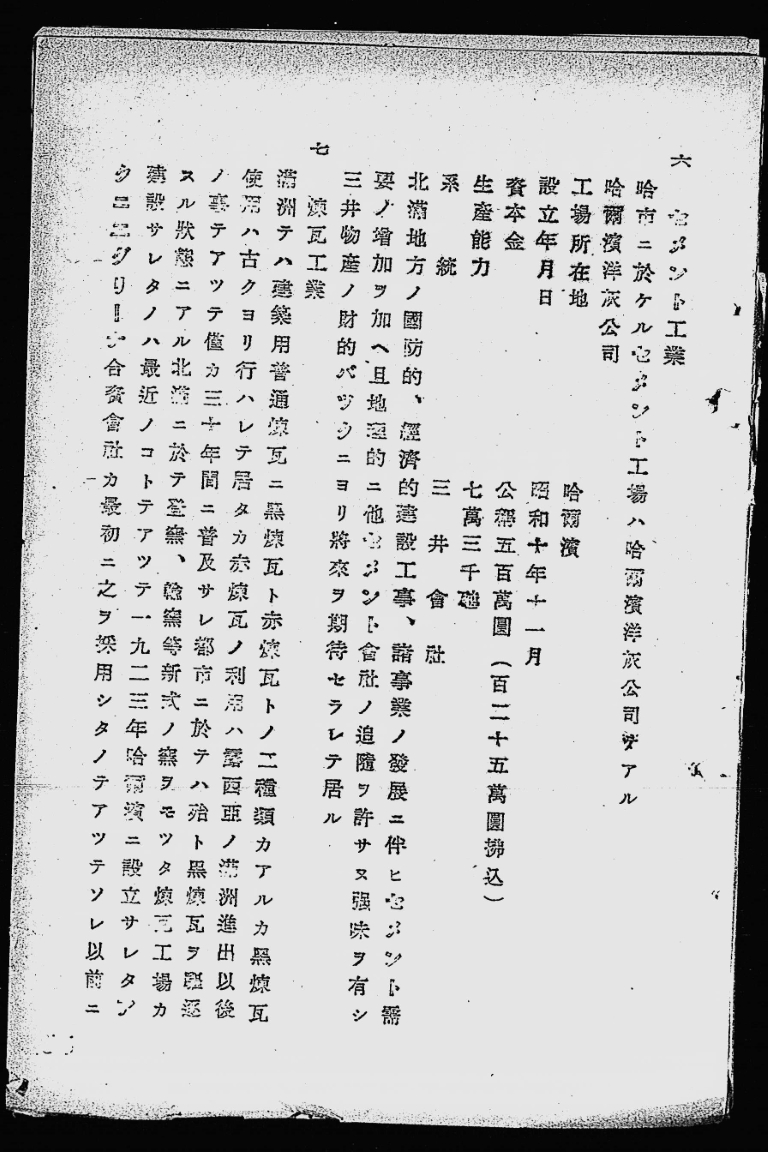 六　セメント工業
哈市ニ於ケルセメント工場ハ哈爾濱洋灰公司デアル
哈爾濱洋灰公司
工場所在地　哈爾濱
設立年月日　昭和十年十一月
資本金　公稱五百萬圓（百二十五萬圓拂込）
生産能力　七萬三千瓲
系統　三井會社
北滿地方ノ國防的、經濟的建設工事、諸事業ノ發展ニ伴ヒセメント需
要ノ增加ヲ加ヘ且地理的ニ他セメント會社ノ追隨ヲ許サヌ强味ヲ有シ
三井物産ノ財的バツクニヨリ將來ヲ期待セラレテ居ル
七　煉瓦工業
滿洲テハ建築用普通煉瓦ニ黑煉瓦ト赤煉瓦トノ二種類カアルカ黑煉瓦
使用ハ古クヨリ行ハレテ居タカ赤煉瓦ノ利用ハ露西亞ノ滿洲進出以後
ノ事テアツテ僅カ三十年間ニ普及サレ都市ニ於テハ殆ト黑煉瓦ヲ驅逐
スル狀態ニアル北滿ニ於テ登窯、輪窯等新式ノ窯ヲモツタ煉瓦工場カ
建設サレタノハ最近ノコトテアツテ一九二三年哈爾濱ニ設立サレタア
クニエグリーナ合資會社カ最初ニ之ヲ採用シタノテアツテソレ以前ニ